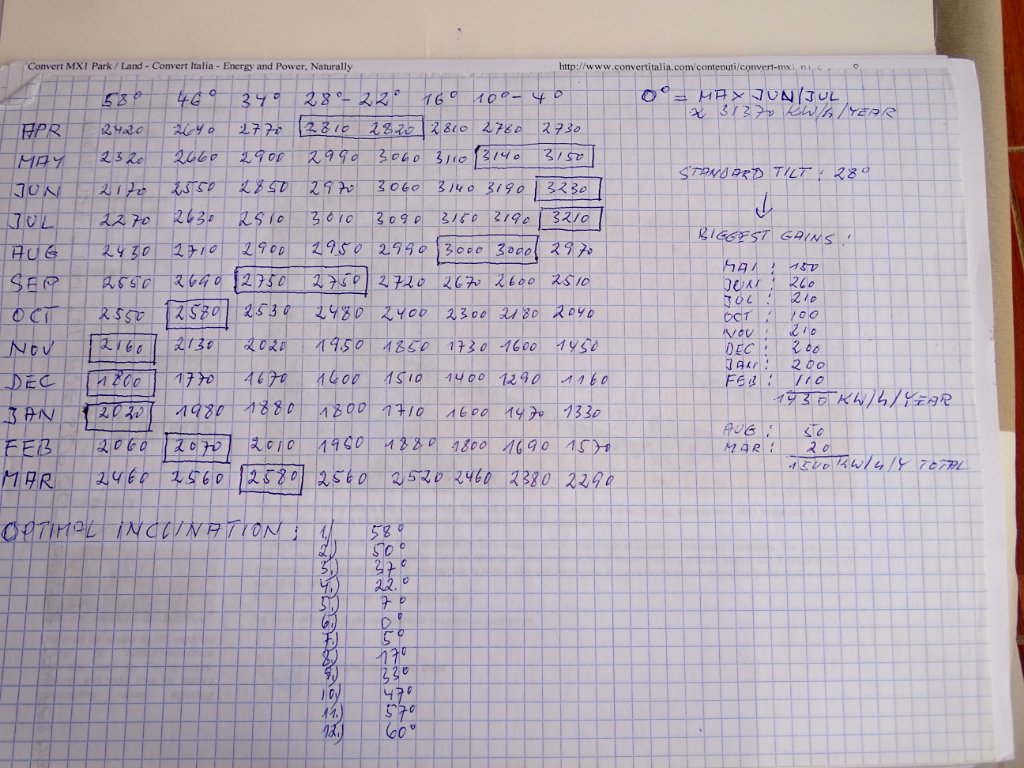 Convert MX1 Park / Land - Convert Italia - Energy and Power, Naturally
http://www.convertitalia.com/contenuti/convert-mx1
58° 46° 34° 28° - 22° 16° 10° - 4°
APR 2420 2640 2770 2810 2820 2810 2780 2730
MAY 2320 2660 2900 2990 3060 3110 3140 3150
JUN 2170 2550 2850 2970 3060 3140 3190 3230
JUL 2270 2630 2910 3010 3090 3150 3190 3210
AUG 2430 2710 2900 2950 2990 3000 3000 2970
SEP 2550 2690 2750 2750 2720 2670 2600 2510
OCT 2550 2580 2530 2480 2400 2300 2180 2040
NOV 2160 2130 2020 1950 1850 1730 1600 1450
DEC 1800 1770 1670 1600 1510 1400 1290 1160
JAN 2020 1980 1880 1800 1710 1600 1470 1330
FEB 2060 2070 2010 1960 1880 1800 1690 1570
MAR 2460 2560 2580 2560 2520 2460 2380 2290
0° = MAX JUN/JUL
≈ 31370 KW/h/YEAR
STANDARD TILT: 28°
↓
BIGGEST GAINS:
MAI: 150
JUN: 260
JUL: 210
OCT: 100
NOV: 210
DEC: 200
JAN: 200
FEB: 110
1430 KW/h/YEAR
AUG: 50
MAR: 20
1500 KW/h/Y TOTAL
OPTIMAL INCLINATION: 1.) 58°
2.) 50°
3.) 37°
4.) 22°
5.) 7°
6.) 0°
7.) 5°
8.) 17°
9.) 33°
10.) 47°
11.) 57°
12.) 60°